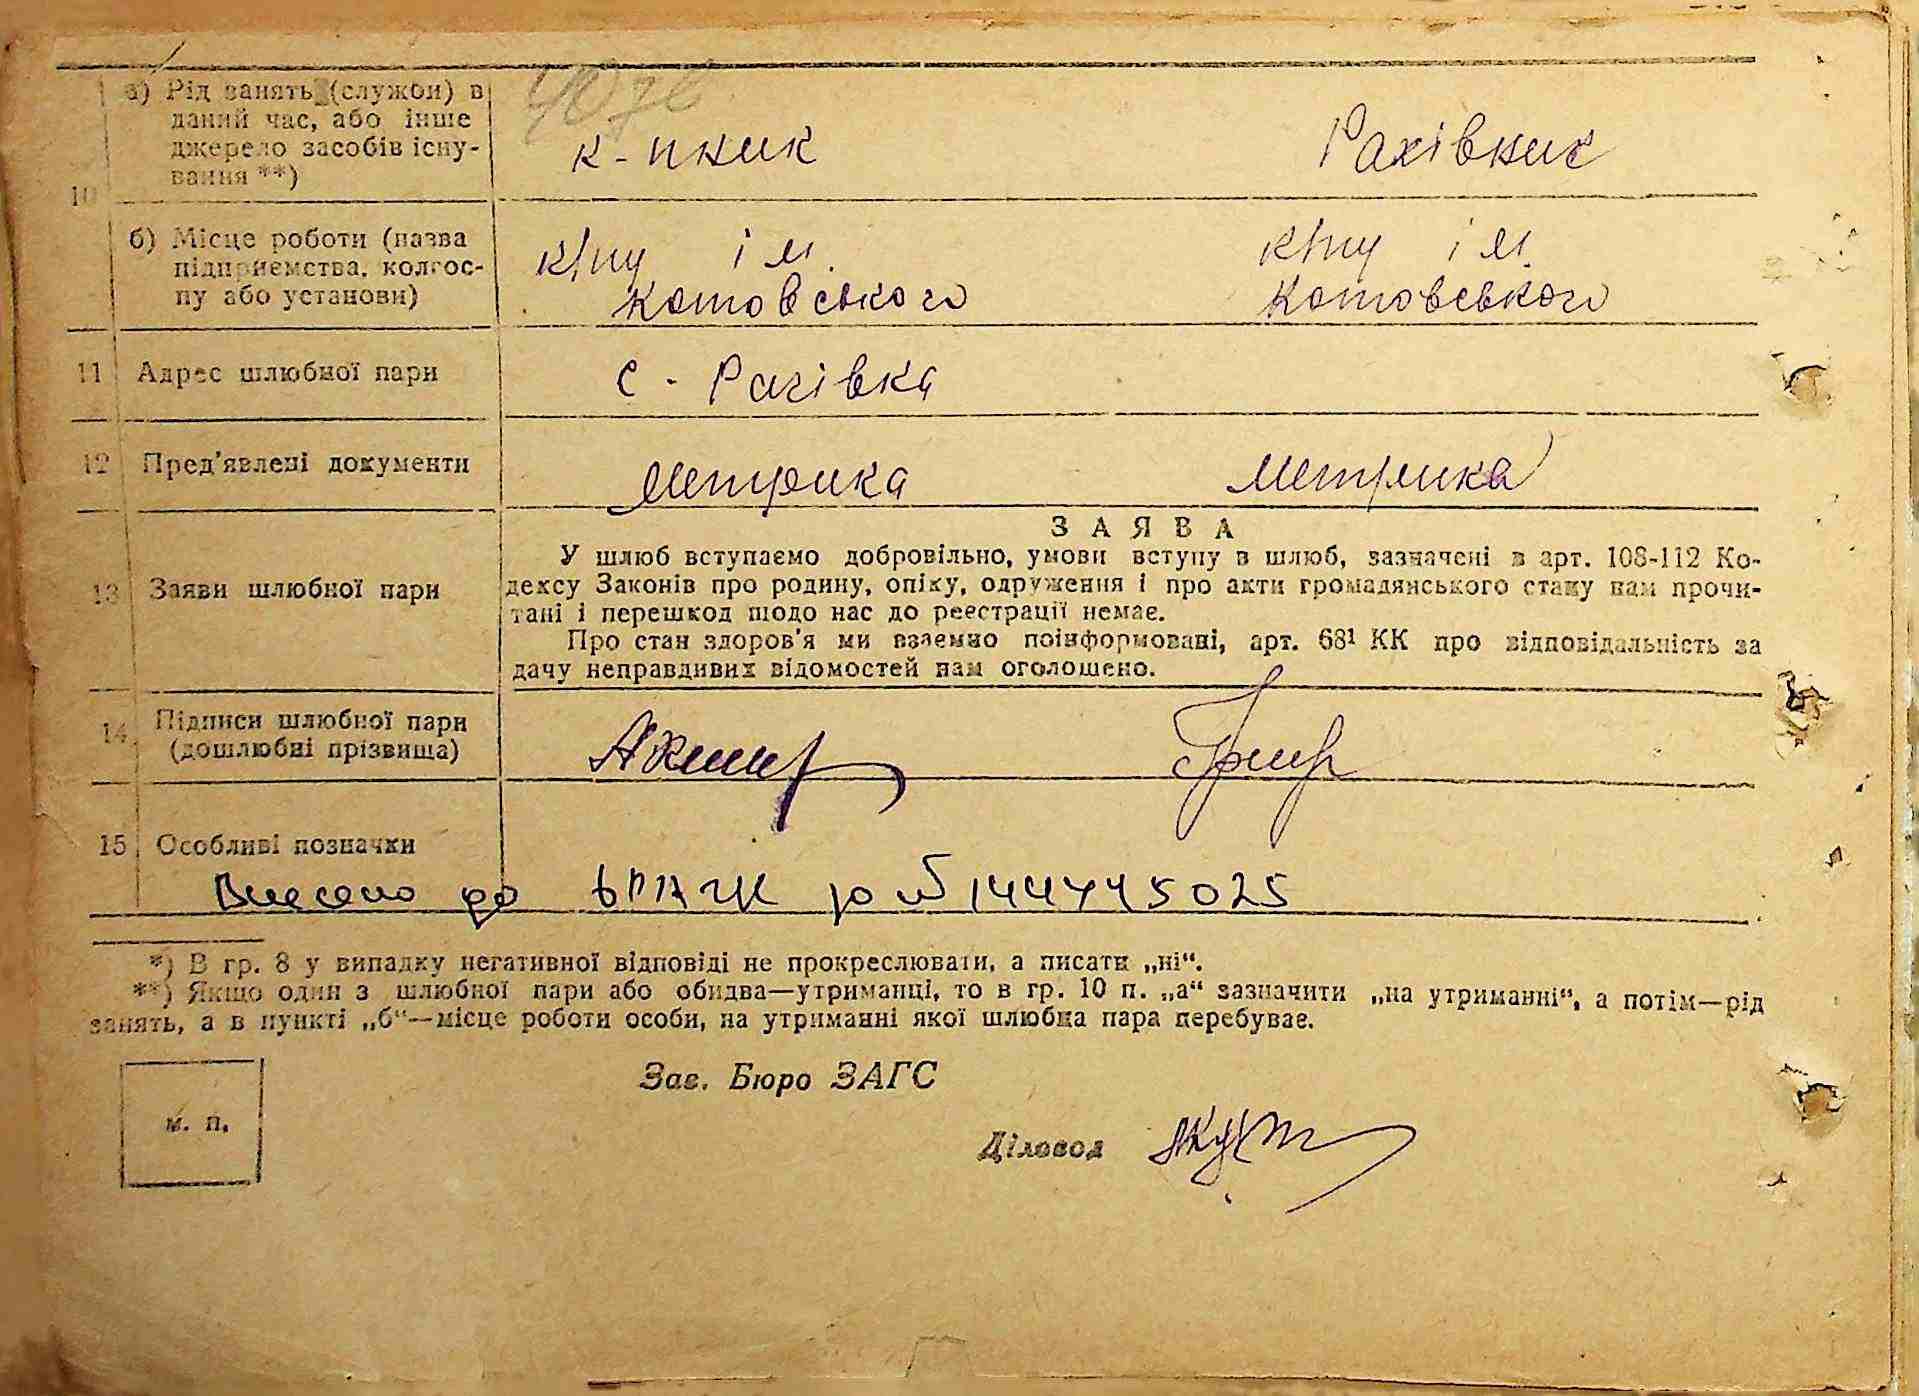 40 зв
10 а) Рід занять (служби) в даний час, або інше джерело засобів існування **)
к-пник Рахівник
б) Місце роботи (назва підприємства, колгоспу або установи)
к/пу ім. к/пу ім.
Котовського Котовського
11 Адрес шлюбної пари с. Рачівка
12 Пред'явлені документи Метрика Метрика
ЗАЯВА
13 Заяви шлюбної пари
У шлюб вступаємо добровільно, умови вступу в шлюб, зазначені в арт. 108-112 Ко-
дексу Законів про родину, опіку, одруження і про акти громадянського стану нам прочи-
тані і перешкод щодо нас до реєстрації немає.
Про стан здоров'я ми взаємно поінформовані, арт. 68¹ КК про відповідальність за
дачу неправдивих відомостей нам оголошено.
14 Підписи шлюбної пари
(дошлюбні прізвища)
15 Особливі позначки
Внесено до
*) В гр. 8 у випадку негативної відповіді не прокреслювати, а писати „ні“.
**) Якщо один з шлюбної пари або обидва—утриманці, то в гр. 10 п. „а“ зазначити „на утриманні“, а потім—рід
занять, а в пункті „б“—місце роботи особи, на утриманні якої шлюбна пара перебуває.
Зав. Бюро ЗАГС
м. п.
Діловод